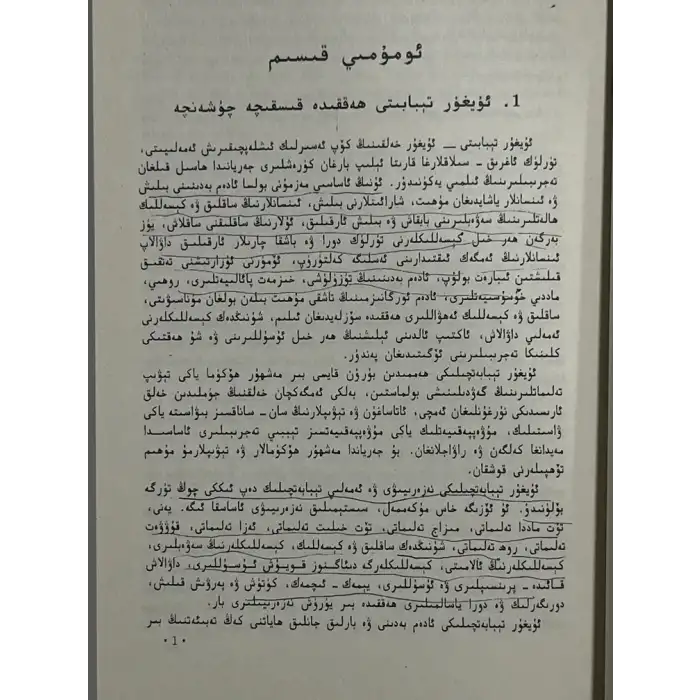 ئومۇمىي قىسىم
1. ئۇيغۇر تېبابىتى ھەققىدە قىسقىچە چۈشەنچە
ئۇيغۇر تېبابىتى — ئۇيغۇر خەلقىنىڭ كۆپ ئەسىرلىك ئىشلەپچىقىرىش ئەمەلىيىتى،
تۈرلۈك ئاغرىق - سىلاقلارغا قارىتا ئېلىپ بارغان كۈرەشلىرى جەريانىدا ھاسىل قىلغان
تەجرىبىلىرىنىڭ ئىلمىي يەكۈنىدۇر. ئۇنىڭ ئاساسىي مەزمۇنى بولسا ئادەم بەدىنىنى بىلىش
ۋە ئىنسانلار ياشايدىغان مۇھىت، شارائىتلارنى بىلىش، ئىنسانلارنىڭ ساقلىق ۋە كېسەللىك
ھالەتلىرىنىڭ سەۋەبلىرىنى بايقاش ۋە بىلىش ئارقىلىق، ئۇلارنىڭ ساقلىقىنى ساقلاش، يۈز
بەرگەن ھەر خىل كېسەللىكلەرنى تۈرلۈك دورا ۋە باشقا چارىلار ئارقىلىق داۋالاپ
ئىنسانلارنىڭ ئەمگەك ئىقتىدارىنى ئەسلىگە كەلتۈرۈپ، ئۆمۈرنى ئۇزارتىشنى تەتقىق
قىلىشتىن ئىبارەت بولۇپ، ئادەم بەدىنىنىڭ تۈزۈلۈشى، خىزمەت پائالىيەتلىرى، روھىي،
ماددىي خۇسۇسىيەتلىرى، ئادەم ئورگانىزمىنىڭ تاشقى مۇھىت بىلەن بولغان مۇناسىۋىتى،
ساقلىق ۋە كېسەللىك ئەھۋاللىرى ھەققىدە سۆزلەيدىغان ئىلىم، شۇنىڭدەك كېسەللىكلەرنى
ئەمەلىي داۋالاش، ئاكتىپ ئالدىنى ئېلىشنىڭ ھەر خىل ئۇسۇللىرىنى ۋە شۇ ھەقتىكى
كلىنىكا تەجرىبىلىرىنى ئۆگىتىدىغان پەندۇر.
ئۇيغۇر تېبابەتچىلىكى ھەممىدىن بۇرۇن قايسى بىر مەشھۇر ھۆكۈما ياكى تېۋىپ
تەلىماتلىرىنىڭ گەۋدىلىنىشى بولماستىن، بەلكى ئەمگەكچان خەلقنىڭ جۈملىدىن خەلق
ئارىسىدىكى نۇرغۇنلىغان ئەمچى، ئاتاساغۇن ۋە تېۋىپلارنىڭ سان - ساناقسىز بىۋاسىتە ياكى
ۋاسىتىلىك، مۇۋەپپەقىيەتلىك ياكى مۇۋەپپەقىيەتسىز تىببىي تەجرىبىلىرى ئاساسىدا
مەيدانغا كەلگەن ۋە راۋاجلانغان. بۇ جەرياندا مەشھۇر ھۆكۈمالار ۋە تېۋىپلارمۇ مۇھىم
تۆھپىلەرنى قوشقان.
ئۇيغۇر تېبابەتچىلىكى نەزەرىيىۋى ۋە ئەمەلىي تېبابەتچىلىك دەپ ئىككى چوڭ تۈرگە
بۆلۈنىدۇ. ئۇ ئۆزىگە خاس مۇكەممەل، سىستېمىلىق نەزەرىيىۋى ئاساسقا ئىگە. يەنى،
تۆت ماددا تەلىماتى، مىزاج تەلىماتى، تۆت خىلىت تەلىماتى، ئەزا تەلىماتى، قۇۋۋەت
تەلىماتى، روھ تەلىماتى، شۇنىڭدەك ساقلىق ۋە كېسەللىك، كېسەللىكلەرنىڭ سەۋەبلىرى،
كېسەللىكلەرنىڭ ئالامىتى، كېسەللىكلەرگە دىئاگنوز قويۇش ئۇسۇللىرى، داۋالاش
قائىدە - پرىنسىپلىرى ۋە ئۇسۇللىرى، يېمەك - ئىچمەك، كۈتۈش ۋە پەرۋىش قىلىش،
دورىگەرلىك ۋە دورا ياسالمىلىرى ھەققىدە بىر يۈرۈش نەزەرىيىلىرى بار.
ئۇيغۇر تېبابەتچىلىكى ئادەم بەدىنى ۋە بارلىق جانلىق ھاياتنى كەڭ تەبىئەتنىڭ بىر
· 1 ·